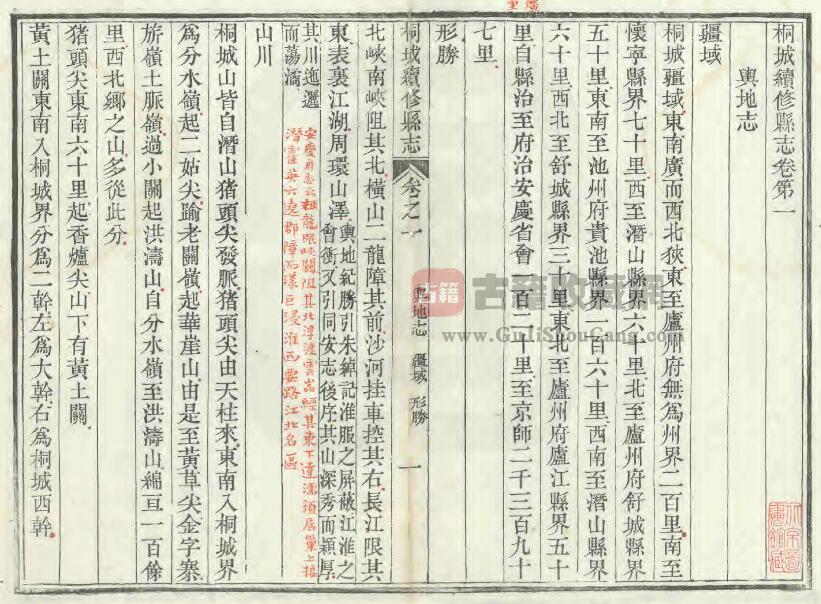 桐城續修縣志卷第一
輿地志
疆域
桐城疆域東南廣而西北狹東至廬州府無爲州界二百里南至
懷寧縣界七十里西至潛山縣界六十里北至廬州府舒城縣界
五十里東南至池州府貴池縣界一百六十里西南至潛山縣界
六十里西北至舒城縣界三十里東北至廬州府廬江縣界五十
里自縣治至府治安慶省會一百二十里至京師二千三百九十
七里
形勝
桐城續修縣志
卷之一
輿地志
疆域
形勝
一
北峽南峽阻其北橫山二龍障其前沙河挂車控其右長江限其
東表裏江湖周環山澤
輿地紀勝引朱綽記淮服之屏蔽江淮之
會衝又引同安志後序其山深秀而穎厚
其川迤邐
而蕩潏
安慶府志云祖龍眠峽關阻其北浮渡雲嵓經其東下達濡須居巢上接
潛霍英六遠郡障而漾巨浸淮西要路江北名區
山川
桐城山皆自潛山猪頭尖發脈猪頭尖由天柱來東南入桐城界
爲分水嶺起二姑尖踰老關嶺起華崖山由是至黃草尖金字寨
旂嶺土脈嶺過小關起洪濤山自分水嶺至洪濤山綿亘一百餘
里西北鄉之山多從此分
猪頭尖東南六十里起香爐尖山下有黃土關
黃土關東南入桐城界分爲二幹左爲大幹右爲桐城西幹
古籍
古籍收藏網
www.GuJiShouCang.com